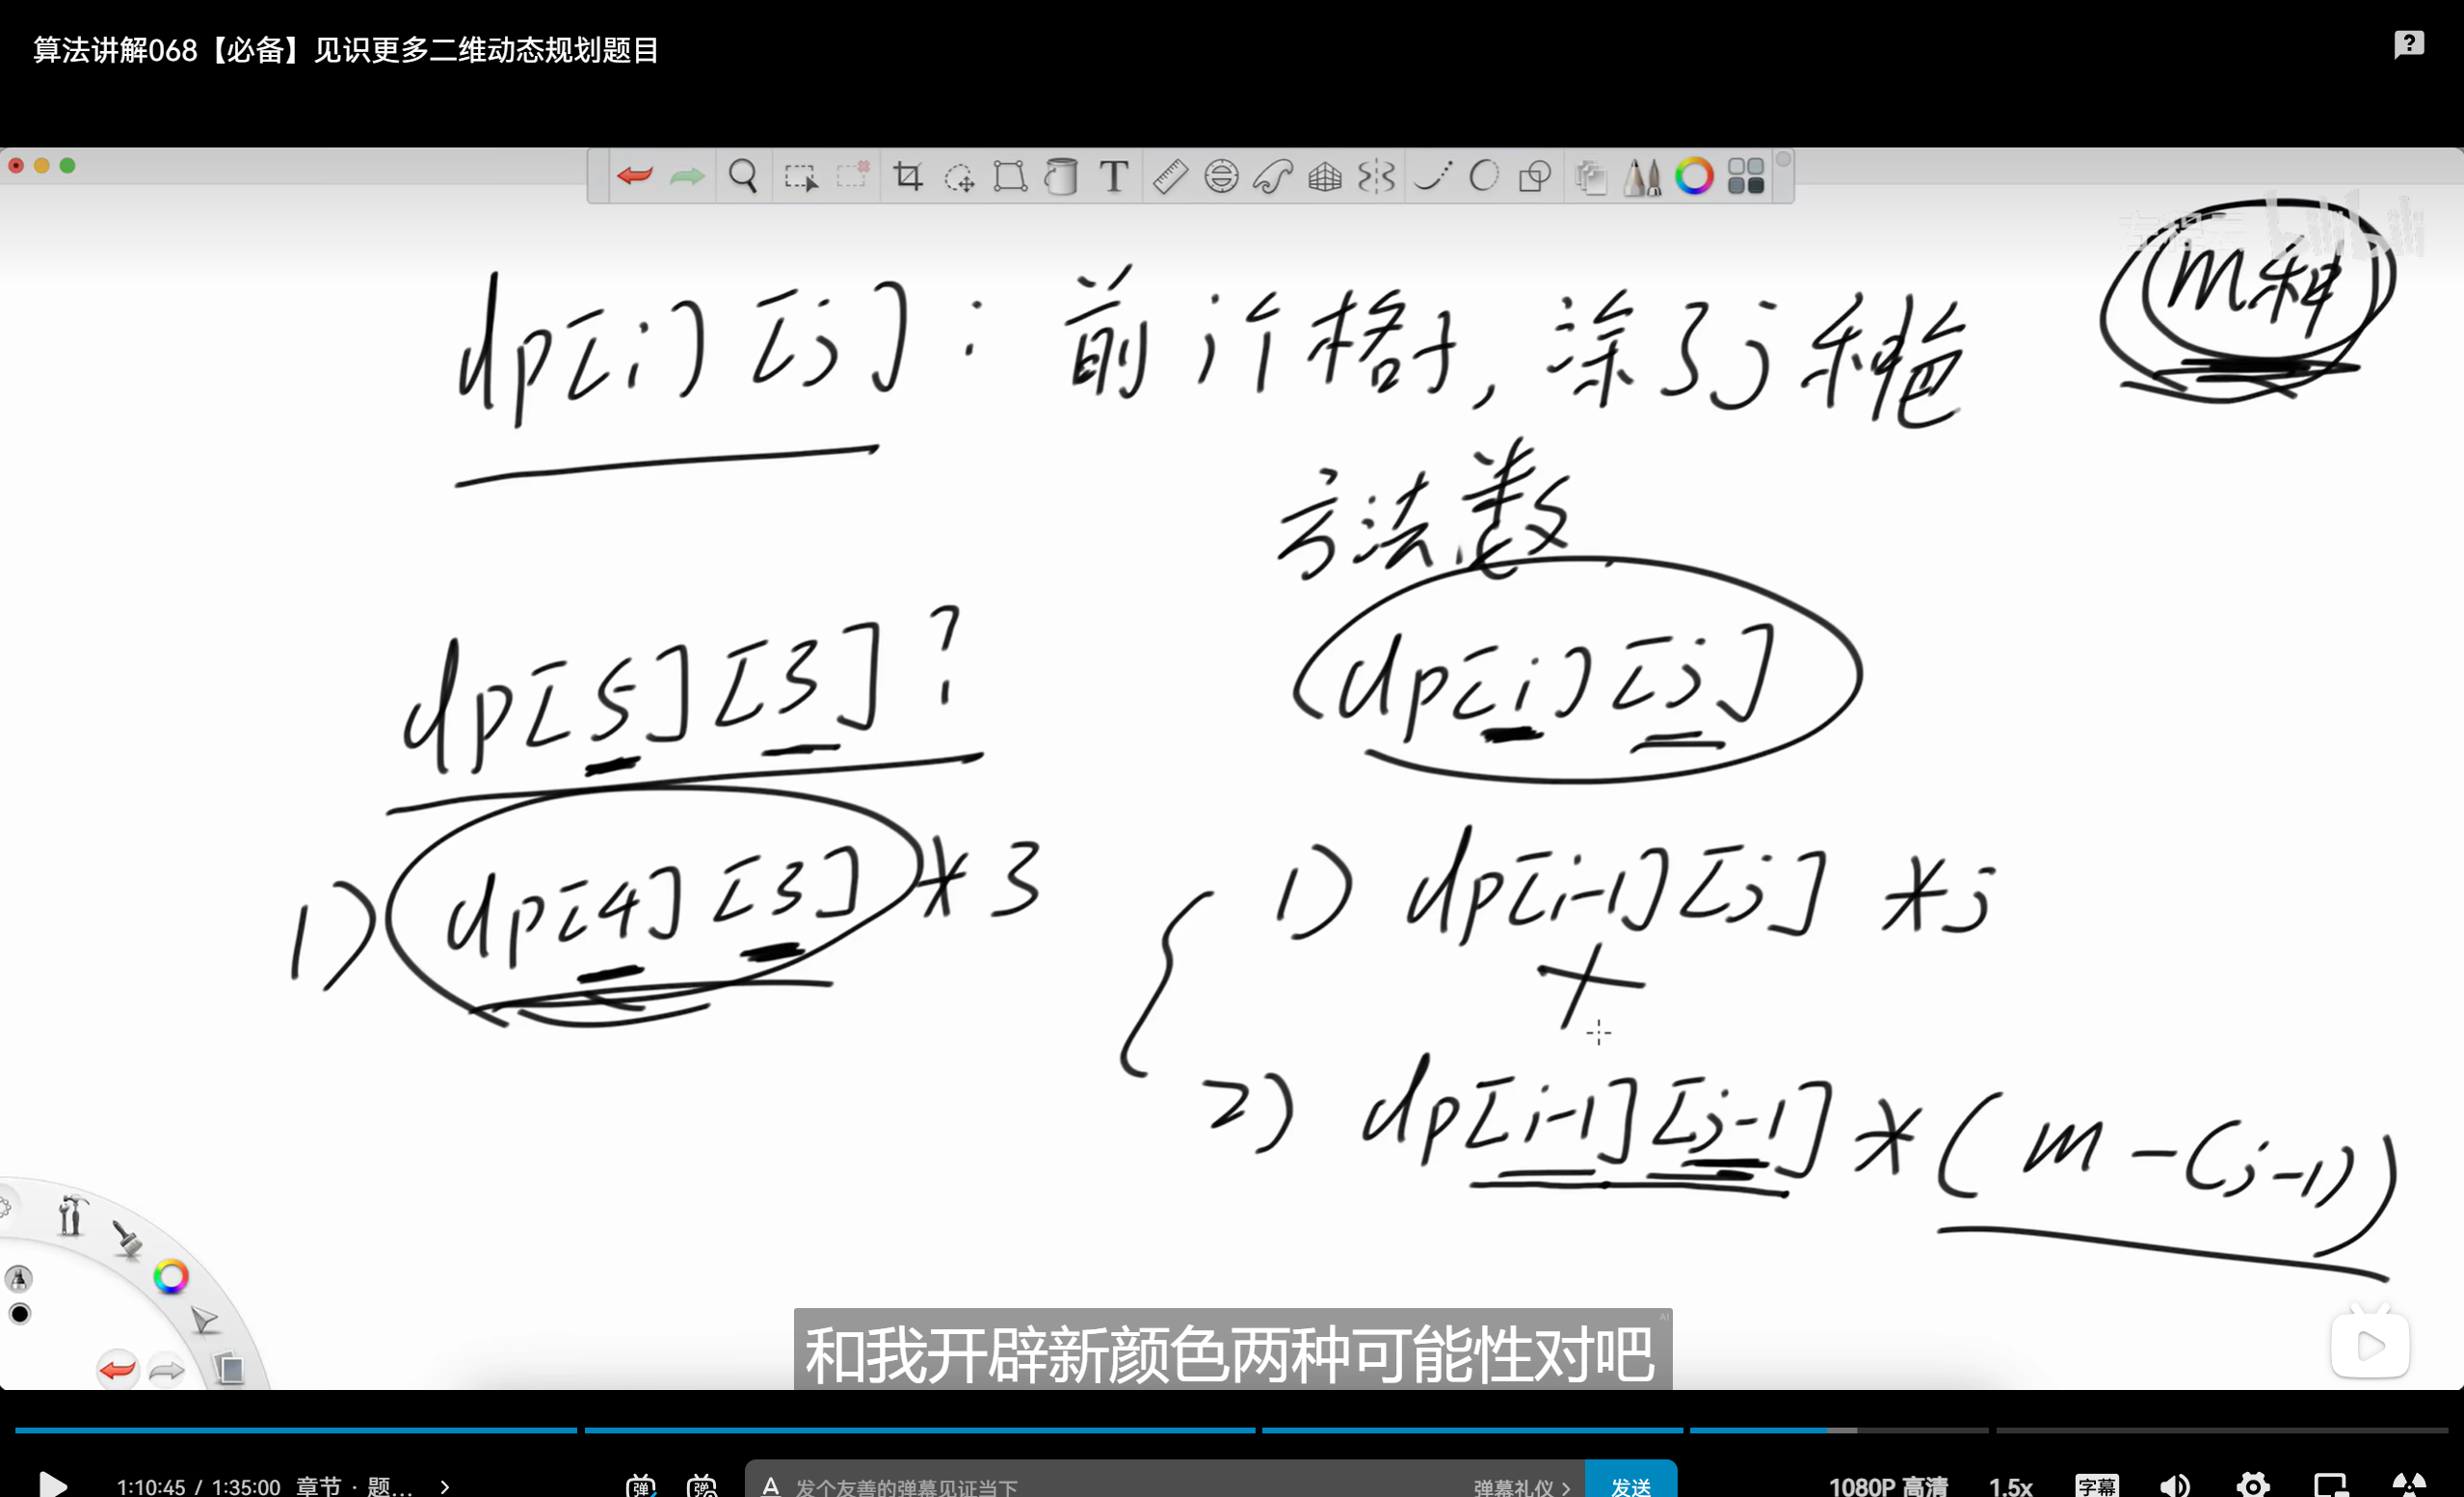 算法讲解068【必备】见识更多二维动态规划题目
m种
dp[i][j]：前i个格子，涂了j种色
方法数
dp[5][3]?
dp[i][j]
1) dp[4][3] * 3
1) dp[i-1][j] * j
+
2) dp[i-1][j-1] * (m-(j-1))
和我开辟新颜色两种可能性对吧
1:10:45 / 1:35:00 章节 · 题... >
弹 弹 A 发个友善的弹幕见证当下 弹幕礼仪 > 发送
1080P 高清 1.5x 字幕